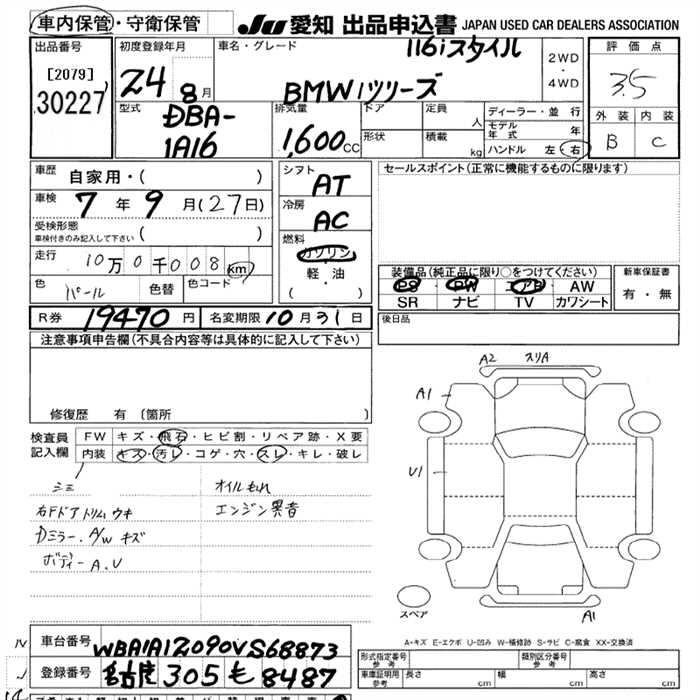 車内保管・守衛保管
JU 愛知 出品申込書 JAPAN USED CAR DEALERS ASSOCIATION
出品番号
[2079]
30227
初度登録年月
24 8月
車名・グレード
116iスタイル
BMW1ツリーズ
2WD
・
4WD
評価点
3.5
外装 内装
B C
型式
DBA-
1A16
排気量
1,600cc
ドア
定員 人
形状
積載 kg
ディーラー・並行
モデル年式 年
ハンドル 左・右
車歴 自家用・( )
車検 7年 9月(27日)
受検形態
車検付きのみ記入して下さい ( )
走行 10万0千008km
色 パール 色替 色コード
シフト AT
冷房 AC
燃料
ガソリン
・
軽・油
( )
セールスポイント(正常に機能するものに限ります)
装備品(純正品に限り○をつけてください)
PS PW エアB AW
SR ナビ TV カワシート
新車保証書
有・無
R券 19470円 名変期限 10月31日
後日品
注意事項申告欄(不具合内容等は具体的に記入して下さい)
修復歴 有 (箇所
検査員
記入欄
FW キズ・飛石・ヒビ割・リペア跡・X要
内装 キズ・汚レ・コゲ・穴・スレ・キレ・破レ
シミ
右Fドアトリムウキ
Dミラー.A/Wキズ
ボディーA.U
オイルもれ
エンジン異音
A2 スリA
A1
U1
スペア
A1
A-キズ E-エクボ U-凹み W-補修跡 S-サビ C-腐食 XX-交換済
車台番号 WBA1A12090VS68873
登録番号 名古屋 305 も 8487
形式指定番号
参考
類別区分番号
参考
車庫証明用
参考
長さ cm
幅 cm
高さ cm